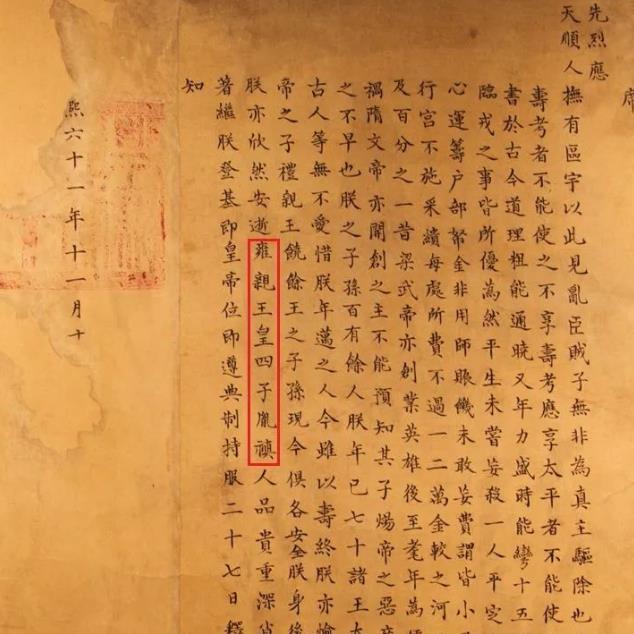 席
先烈應
天順人撫有區宇以此見亂臣賊子無非為真主驅除也
壽考者不能使之不享壽考應享太平者不能使
書於古今道理粗能通曉又年力盛時能彎十五
臨戎之事皆所優為然平生未嘗妄殺一人平定
心運籌户部帑金非用師賑饑未敢妄費謂皆小
行宮不施采繢每處所費不過一二萬金較之河
及百分之一昔梁武帝亦創業英雄後至耄年為
禍隋文帝亦開創之主不能預知其子煬帝之惡
之不早也朕之子孫百有餘人朕年已七十諸王大
古人等無不愛惜朕年邁之人今雖以壽終朕亦愉
帝之子禮親王饒餘王之子孫現今俱各安全朕身後
朕亦欣然安逝雍親王皇四子胤禛人品貴重深肖
著繼朕登基即皇帝位即遵典制持服二十七日釋
知
熙六十一年十一月十